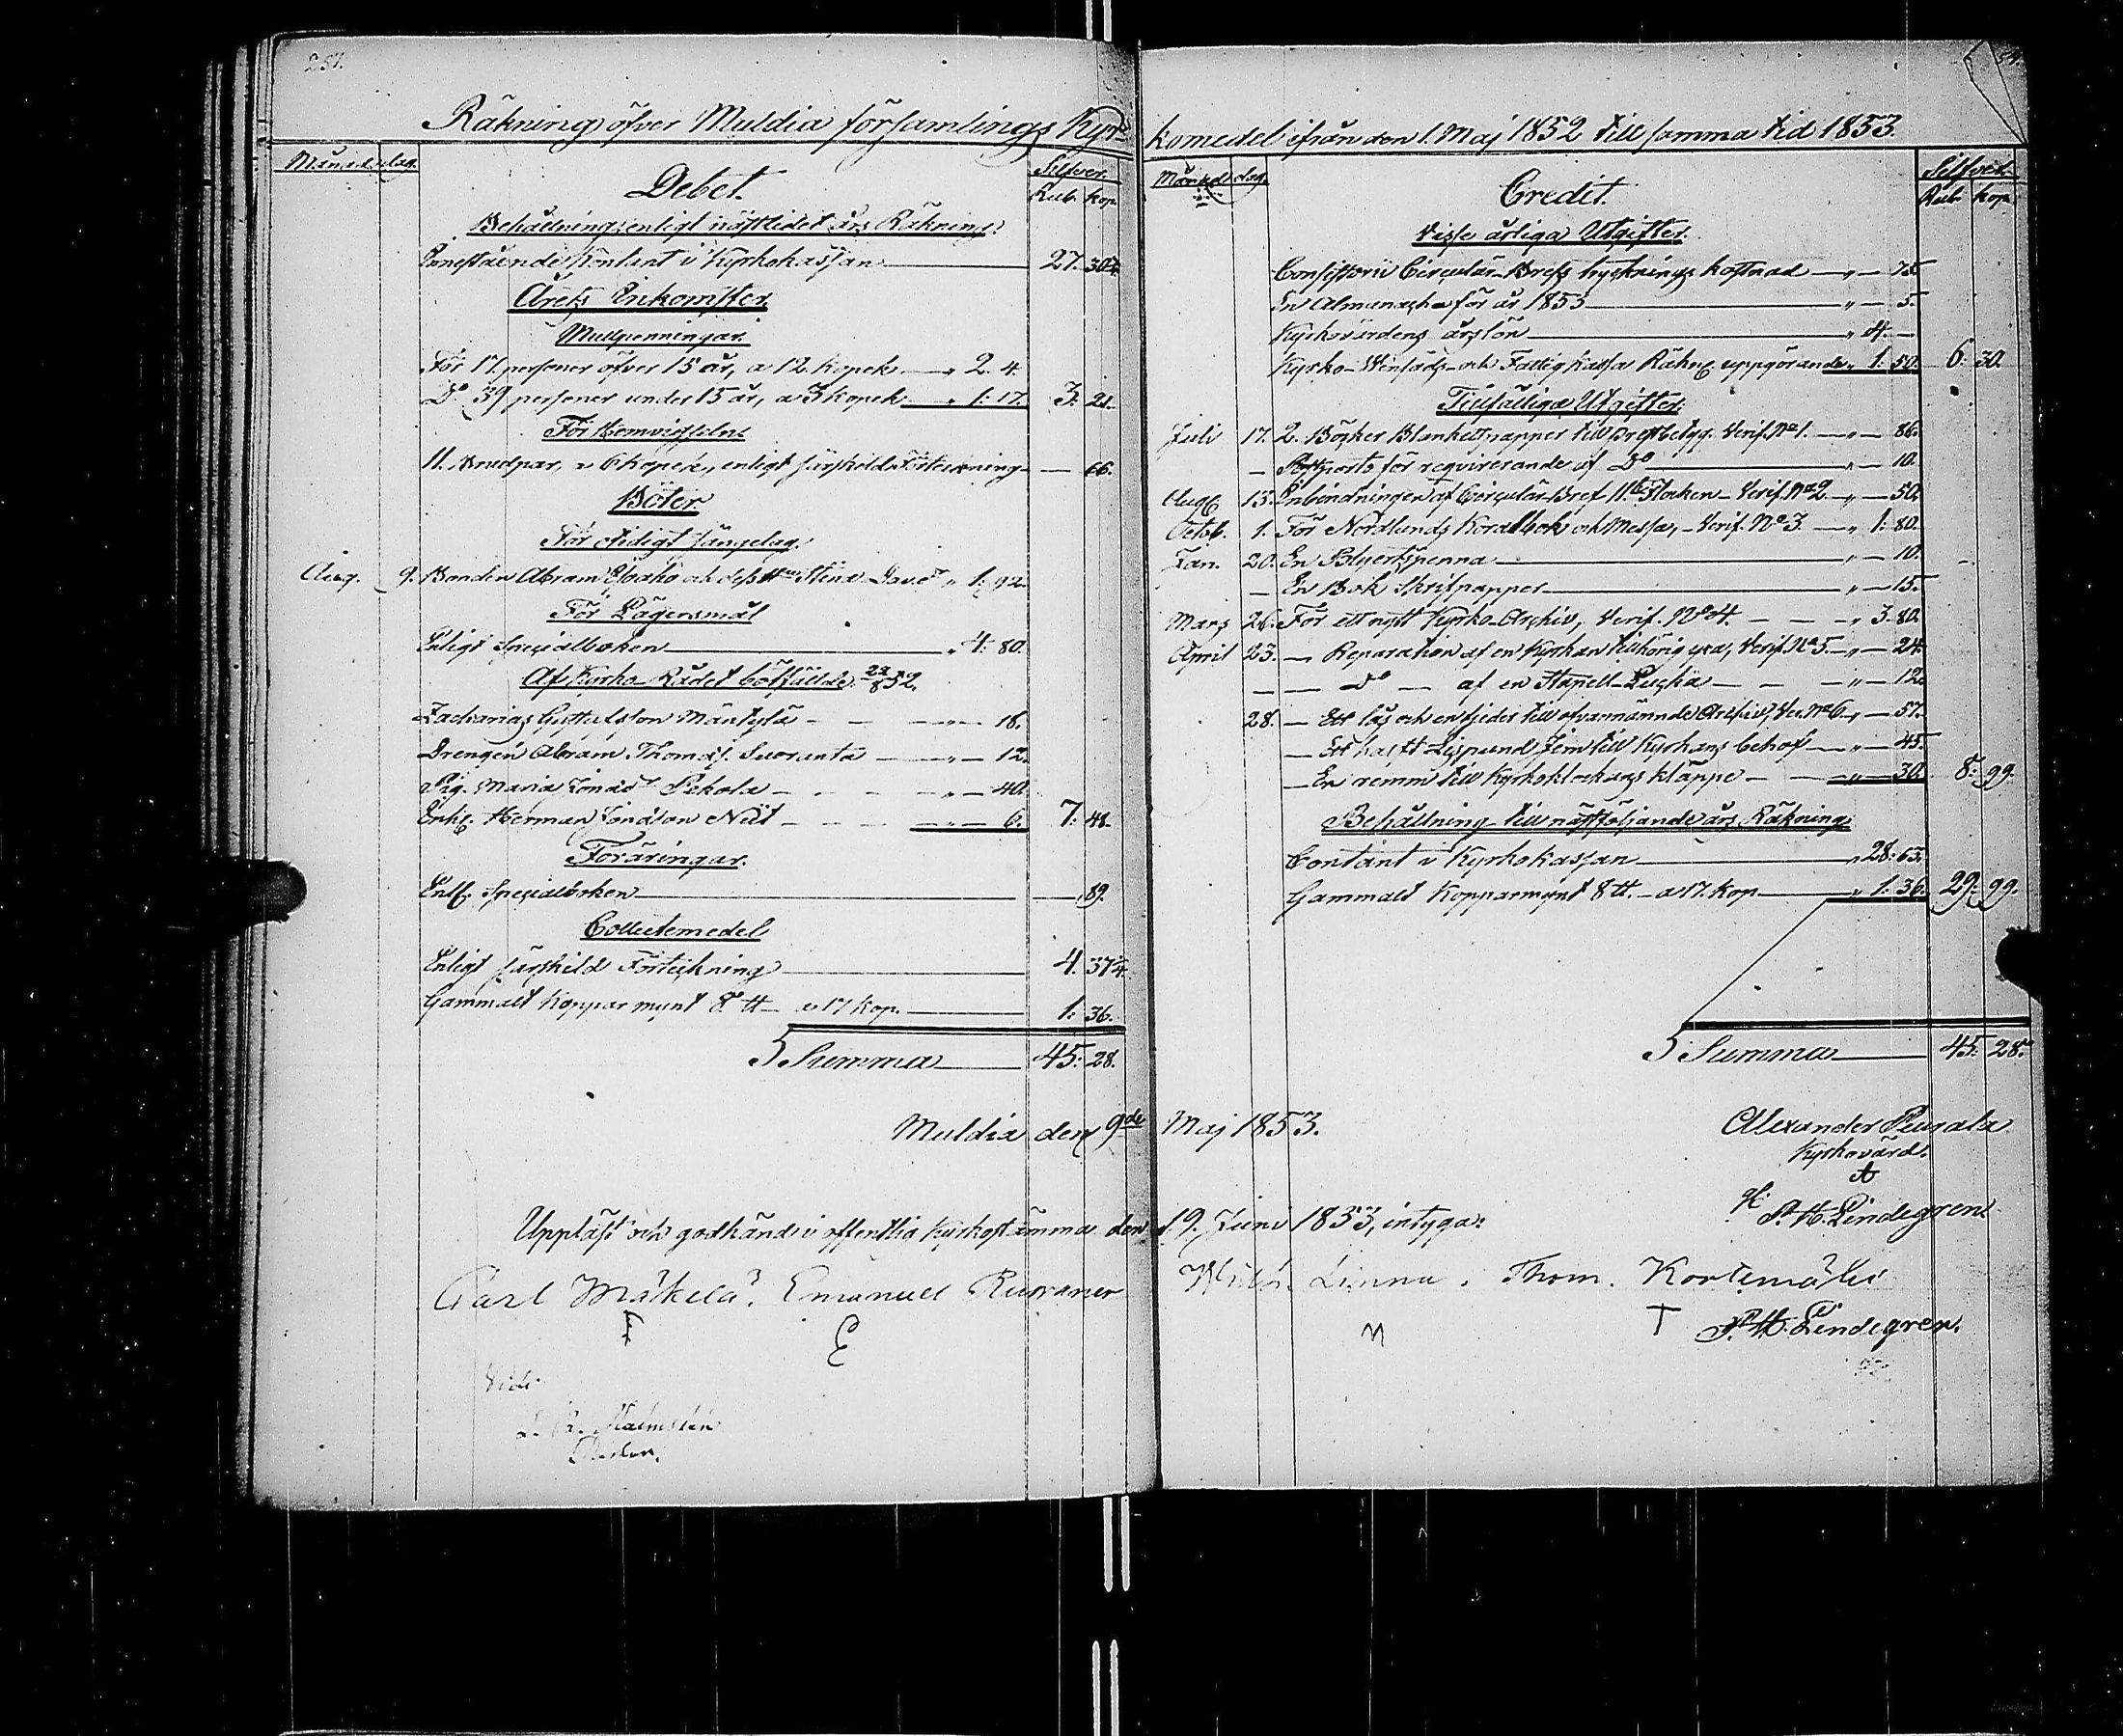 257.
Räkning öfver Muldia församlings Kyr-
Månad dag. Silfver.
Debet. Rub. Kop.
Behållning enligt nästledet års Räkning.
Innestående Kontant i Kyrkokassan 27. 30 3/4
Årets Inkomster.
Mullpenningar.
För 17 personer öfver 15 år, a 12 Kopek " 2. 4.
D:o 39 personer under 15 år, a 3 Kopek " 1: 17. 3: 21.
För Hemvistelse
11. Brudpar, a 6 Kopek, enligt särskild Förteckning — 66.
Böter.
För otidigt sängelag.
Aug. 9. Bonden Abram Eloaho och dess H:u Stina Dav:dr " 1: 92.
För Lägersmål
Enligt Specialboken " 4: 80.
Af Kyrko-Rådet bötfällde
Zacharias Gustafsson Mäntylä — " — 18.
Drengen Abram Thomas. Suoranta — " — 12.
Pig. Maria Jonasd:r Pekola — " — 40.
Enkl. Herman Jonasson Niit — " — 6. 7: 48.
Föräringar.
Enl. Specialboken — 89.
Collectemedel
Enligt särskild Förteckning 4. 37 1/4.
Gammalt Koppar mynt 8 tt — a 17 Kop. 1: 36.
Summa 45: 28.
Muldia den 9de
Uppläst och godkänd i offentlig Kyrkostämma den
Carl Mäkelä. Emanuel Ruuraner
E
Vidi
Malmstén
54.
komedel ifrån den 1. Maj 1852 till samma tid 1853.
Månad dag. Silfver.
Credit. Rub. Kop.
Visse årliga Utgifter.
Consistorii Circulär-Brefs tryckningskostnad — " — 75.
En Almanacka för år 1853 " — 5.
Kyrkovärdens årslön " 4. —
Kyrko-Winsäds- och Fattig Kassa Räkn. uppgörande " 1: 50. 6: 30.
Tillfällige Utgifter.
Juli 17. 2. Böcker Blankettpapper till Prestbetyg. Verif. N:o 1. — " — 86.
— Postporto för requirerande af D:o " — 10.
Aug. 13. Inbindningen af Circulär-Bref 11:te Flocken — Verif. N:o 2 " — 50.
Octob. 1. För Nordlunds Koralbok och Messa, — Verif. N:o 3. — " 1: 80.
Jan. 20. En Blyertspenna " — 10.
— En Bok Skrifpapper " — 15.
Mars 26. För ett nytt Kyrko-Archiv, Verif. N:o 4. — — — " 3. 80.
April 23. — Reparation af en Kyrkan tillhörig yxa, Verif. N:o 5. — " — 24.
— — D:o — af en Stapell-Lucka — — — " — 12.
28. — Ett lås och en fjeder till ofvannämnde Archiv, Ver. N:o 6 " — 57.
— Ett halft Lispund Jern till Kyrkans behof — " — 45.
— En remm till Kyrkoklockans kläppe — — " — 30. 8: 99.
Behållning till nästföljande års Räkning
Contant i Kyrkokassan " 28: 63.
Gammalt Kopparmynt 8 tt. — a 17. Kop. " 1: 36. 29: 99.
Summa 45: 28.
Maj 1853.
Alexander Peurala
Kyrkovärd.
P. H. Lindegren.
19. Juni 1853, intyga:
Linna. Thom. Kortemäki
T P. H. Lindegren.